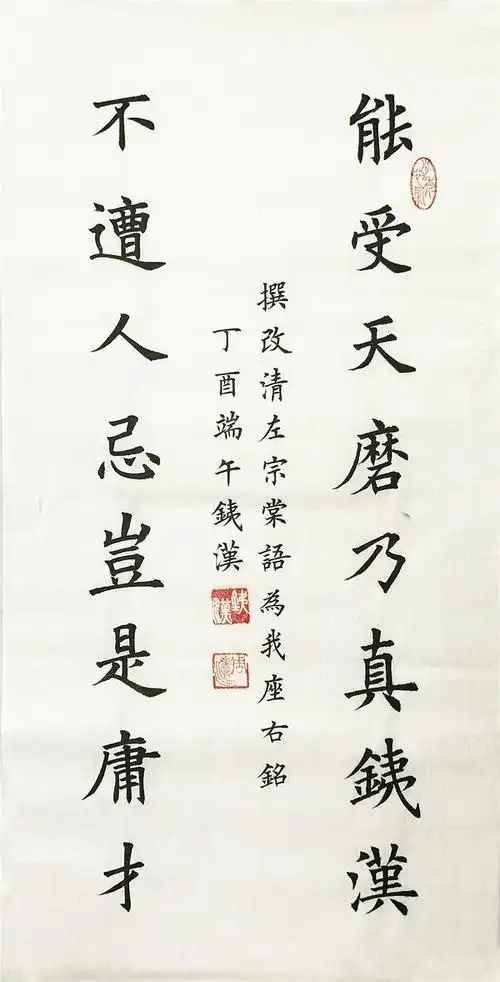 能受天磨乃真銕漢
不遭人忌豈是庸才
撰改清左宗棠語為我座右銘
丁酉端午銕漢
銕漢